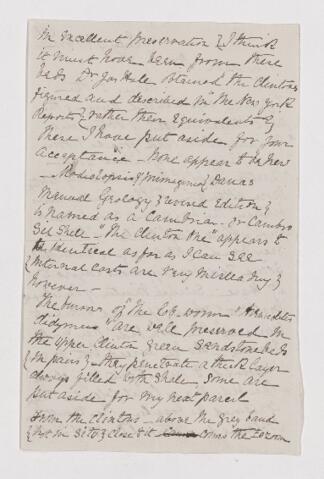 in excellent preservation & I think
it must have been from these
beds Dr Jas Hall obtained the Clintons
figured and described in the New York
Reports & rather their Equivalents of
these I have put aside for your
acceptance - none appear to be new
- Modiolopsis primigenia & Danas
Manual Geology revised Edition &
is named as a Cambrian - or Cambro
Sil Shell - "The Clinton One" appears to
be identical as far as I can see
Internal casts are very misleading
however -
The burrows of the Lob worm "Arenicolites
didymus" are well preserved in
the upper Clinton green Sandstone beds
in pairs & they penetrate a thick layer
always filled with shale - Some are
put aside for my next parcel
From the Clintons - above the grey band
& not in Situ & close to it comes the